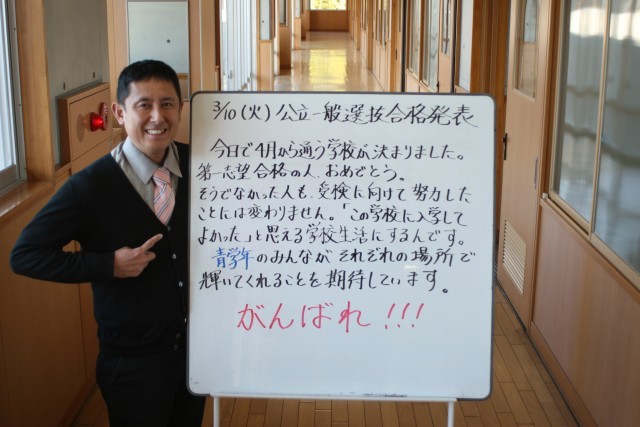 3/10(火)公立一般選抜合格発表
今日で4月から通う学校が決まりました。
第一志望合格の人、おめでとう。
そうでなかった人も、受検に向けて努力した
ことには変わりません。「この学校に入学して
よかった」と思える学校生活にするんです。
青学年のみんながそれぞれの場所で
輝いてくれることを期待しています。
がんばれ!!!